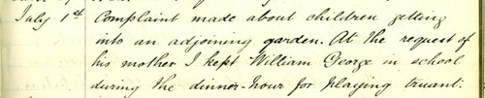 July 1st Complaint made about children getting
into an adjoining garden. At the request of
his mother I kept William George in school
during the dinner-hour for playing truant.